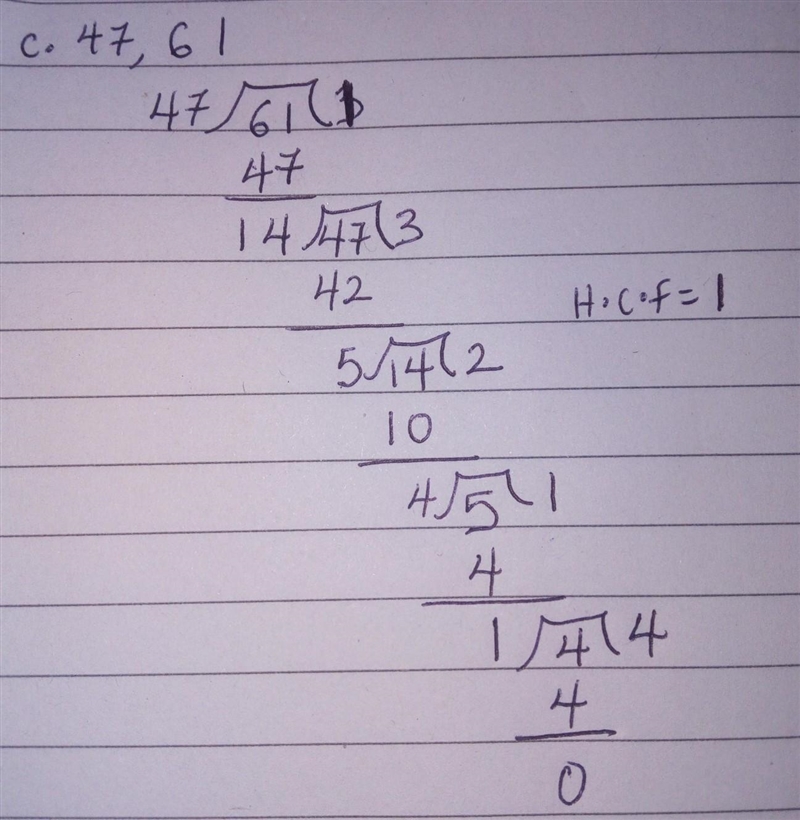 c. 47, 61
47√61(1
47
14√47(3
42
H.C.F=1
5√14(2
10
4√5(1
4
1√4(4
4
0